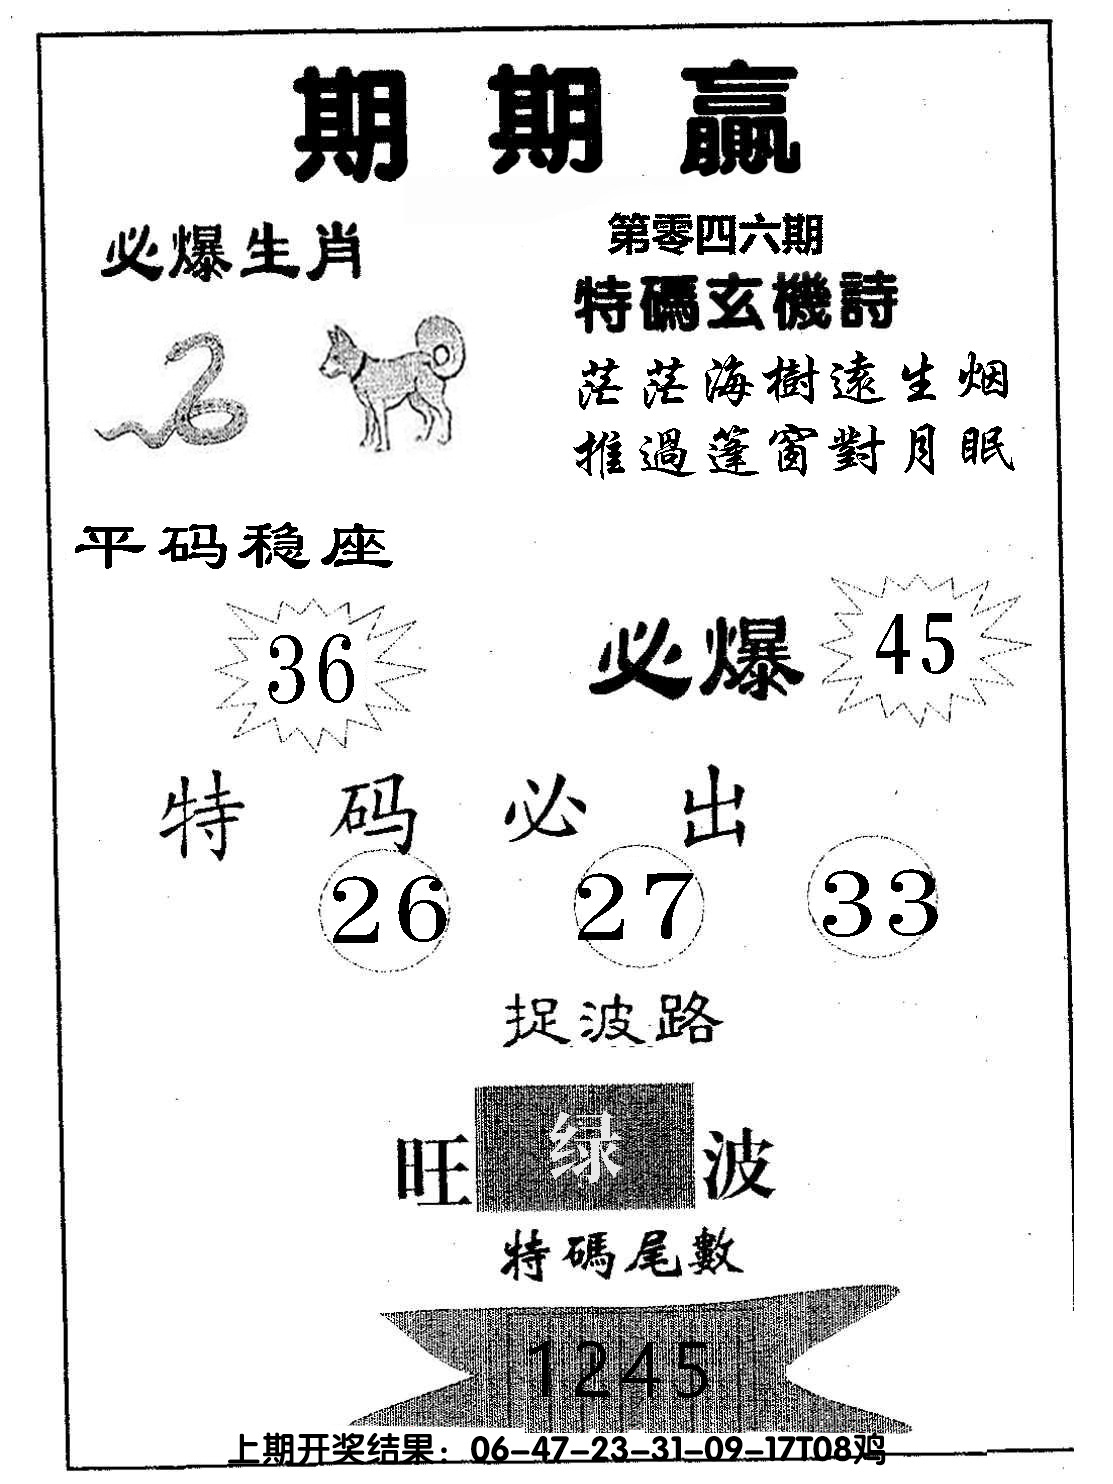 期期赢
必爆生肖
第零四六期
特碼玄機詩
茫茫海樹遠生烟
推過蓬窗對月眠
平码稳座
36
必爆 45
特码必出
26 27 33
捉波路
旺 绿 波
特碼尾數
1245
上期开奖结果：06-47-23-31-09-17T08鸡